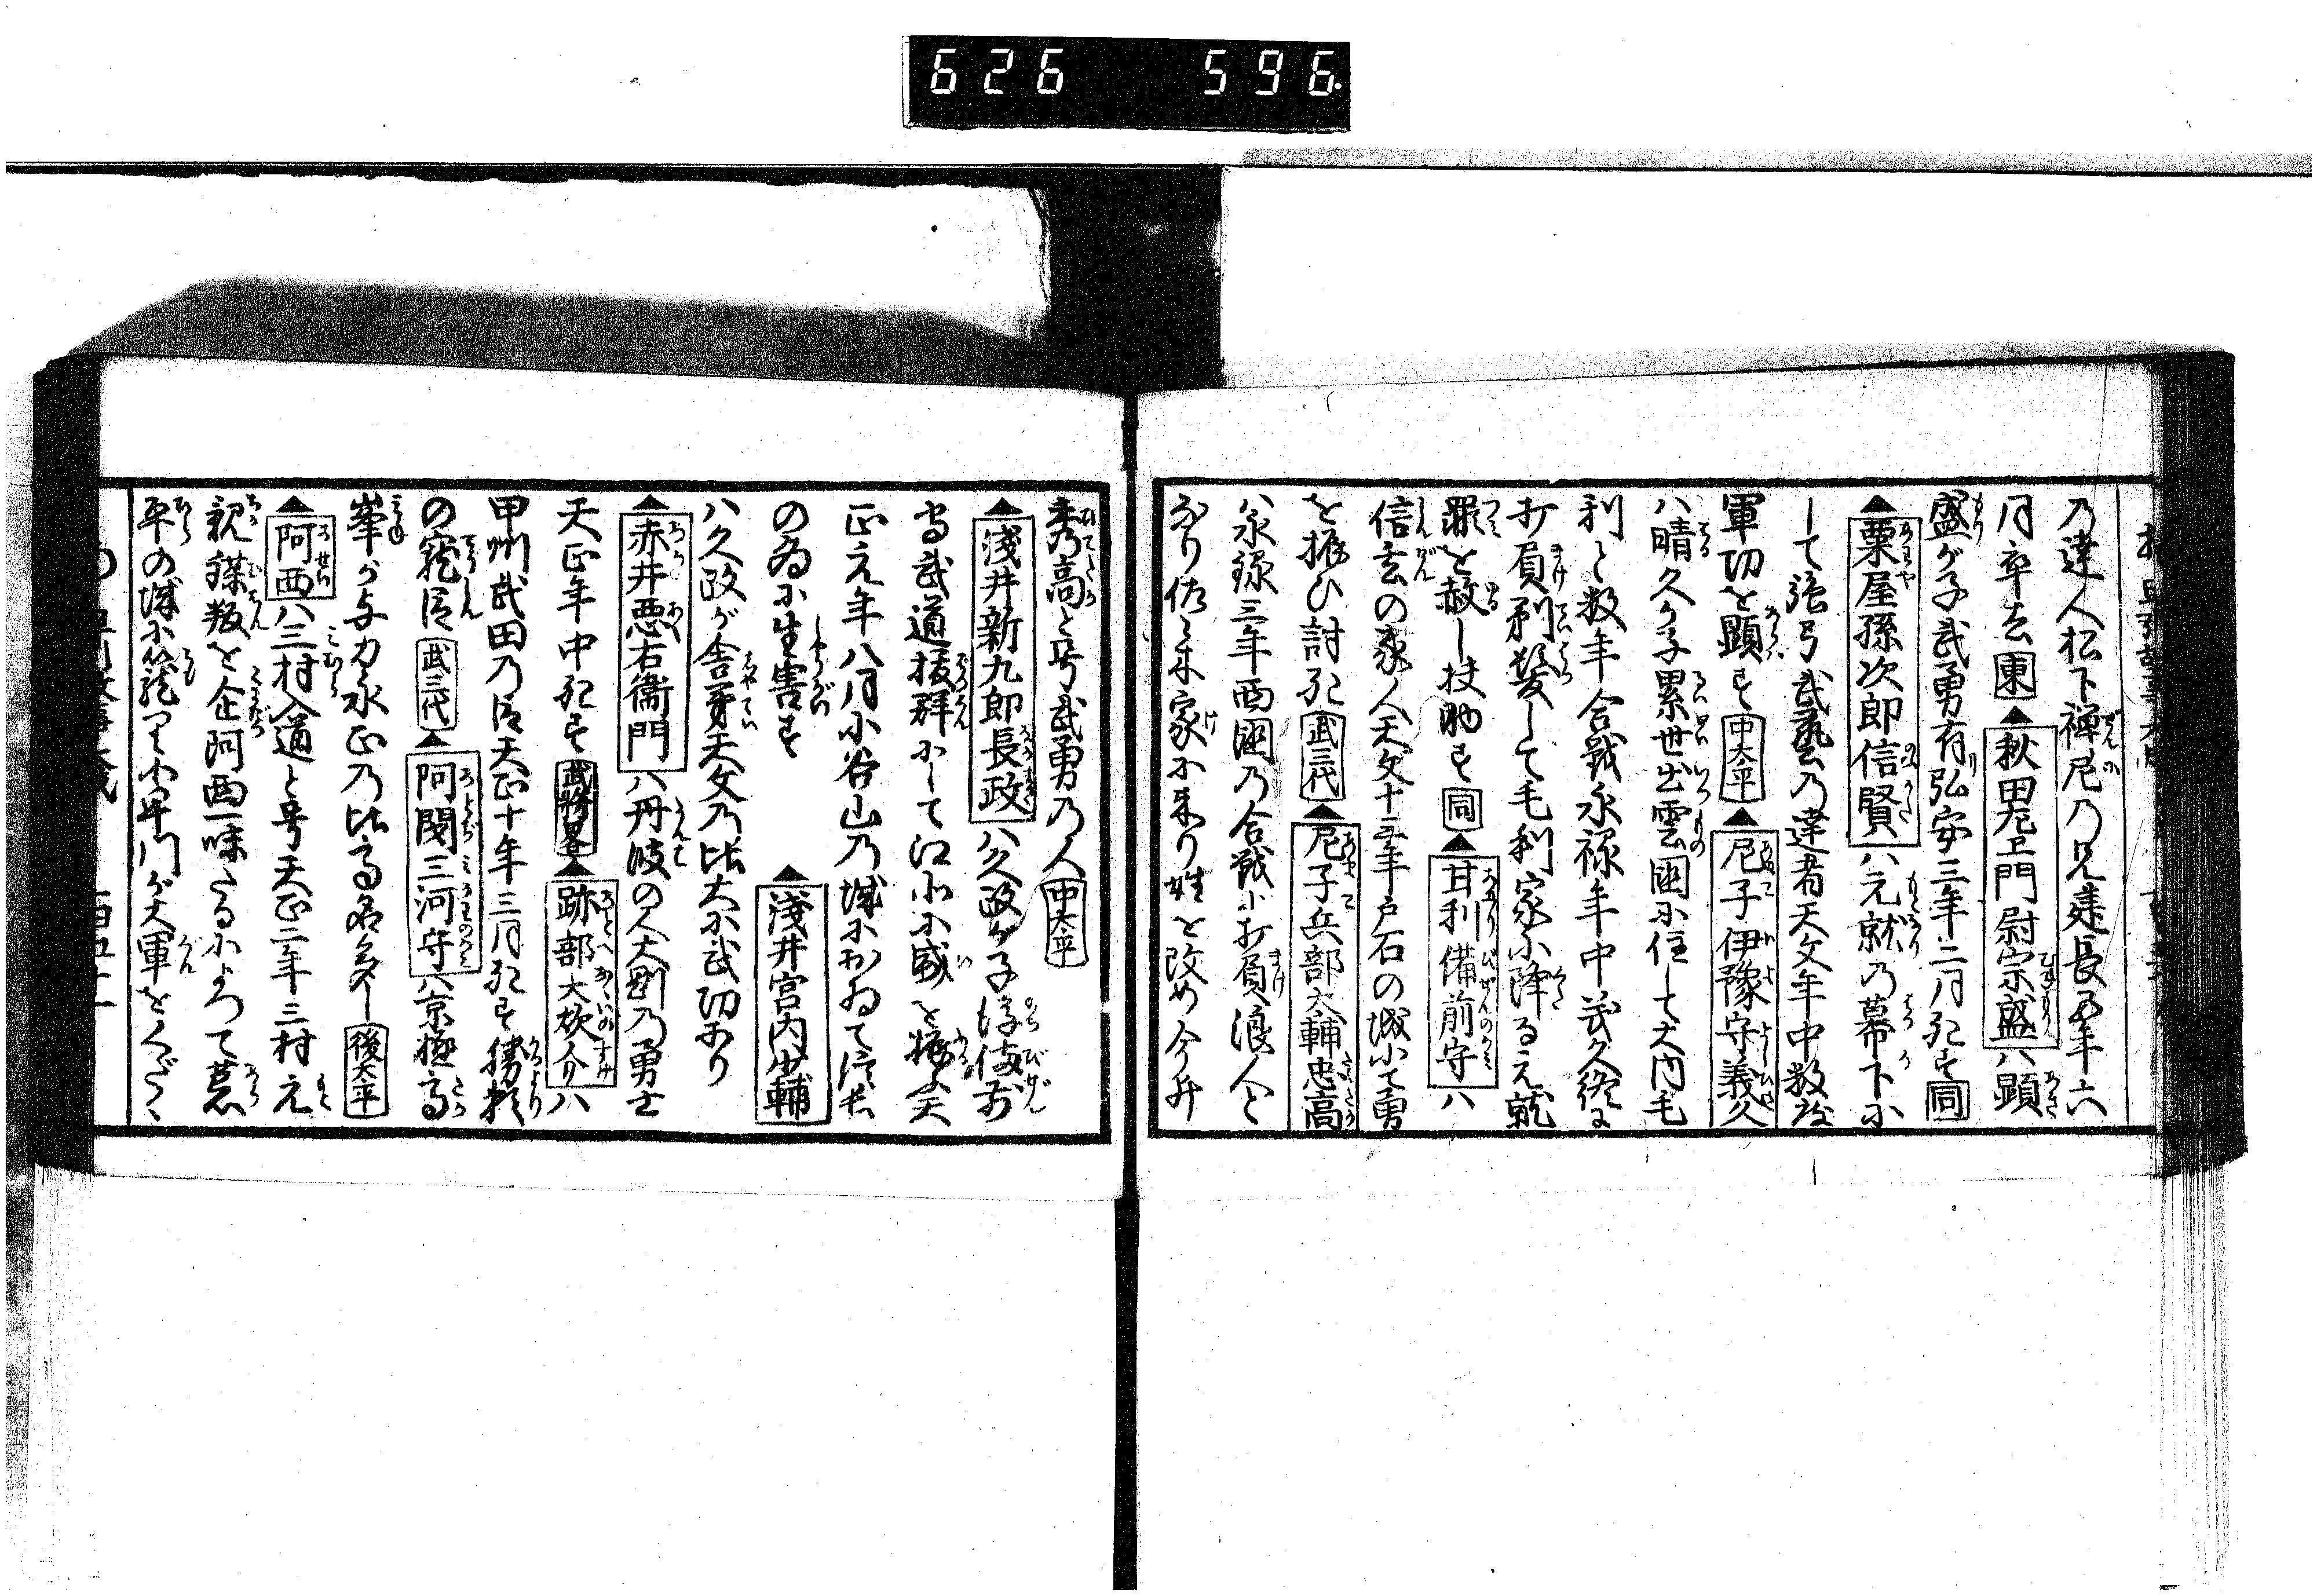 626 596
の達人松下禅尼の兄建長五年六
月卒去東▲秋田左衛門尉宗盛ハ顕
盛が子武勇有弘安三年二月死す同
▲粟屋孫次郎信賢ハ元就の幕下に
して強弓武藝の達者天文年中数度
軍功を顕す中太平▲尼子伊豫守義久
ハ晴久が子累世出雲国に住して大内毛
利と数年合戦永禄年中義久終に
打負剃髪して毛利家に降る元就
罪を赦し扶助す同▲甘利備前守ハ
信玄の家人天文十五年戸石の城にて勇
を振ひ討死武三代▲尼子兵部太輔忠高
ハ永禄三年西国の合戦に打負浪人と
なり佐々木家に来り姓を改め今井
秀高と号武勇の人中太平
▲浅井新九郎長政ハ久政が子後備前
守武道抜群にして江北に威を振ふ天
正元年八月小谷山の城におゐて信長
の為に生害す ▲浅井宮内少輔
ハ久政が舎弟天文の比大に武功あり
▲赤井悪右衛門ハ丹波の人大剛の勇士
天正年中死す武勝畧▲跡部大炊介ハ
甲州武田の臣天正十年三月死す勝頼
の寵臣武三代▲阿閉三河守ハ京極高
峯が与力永正の比高名多し後太平
▲阿西ハ三村入道と号天正二年三村元
親謀叛を企阿西一味たるによつて荒
平の城に籠り小早川が大軍をくだく